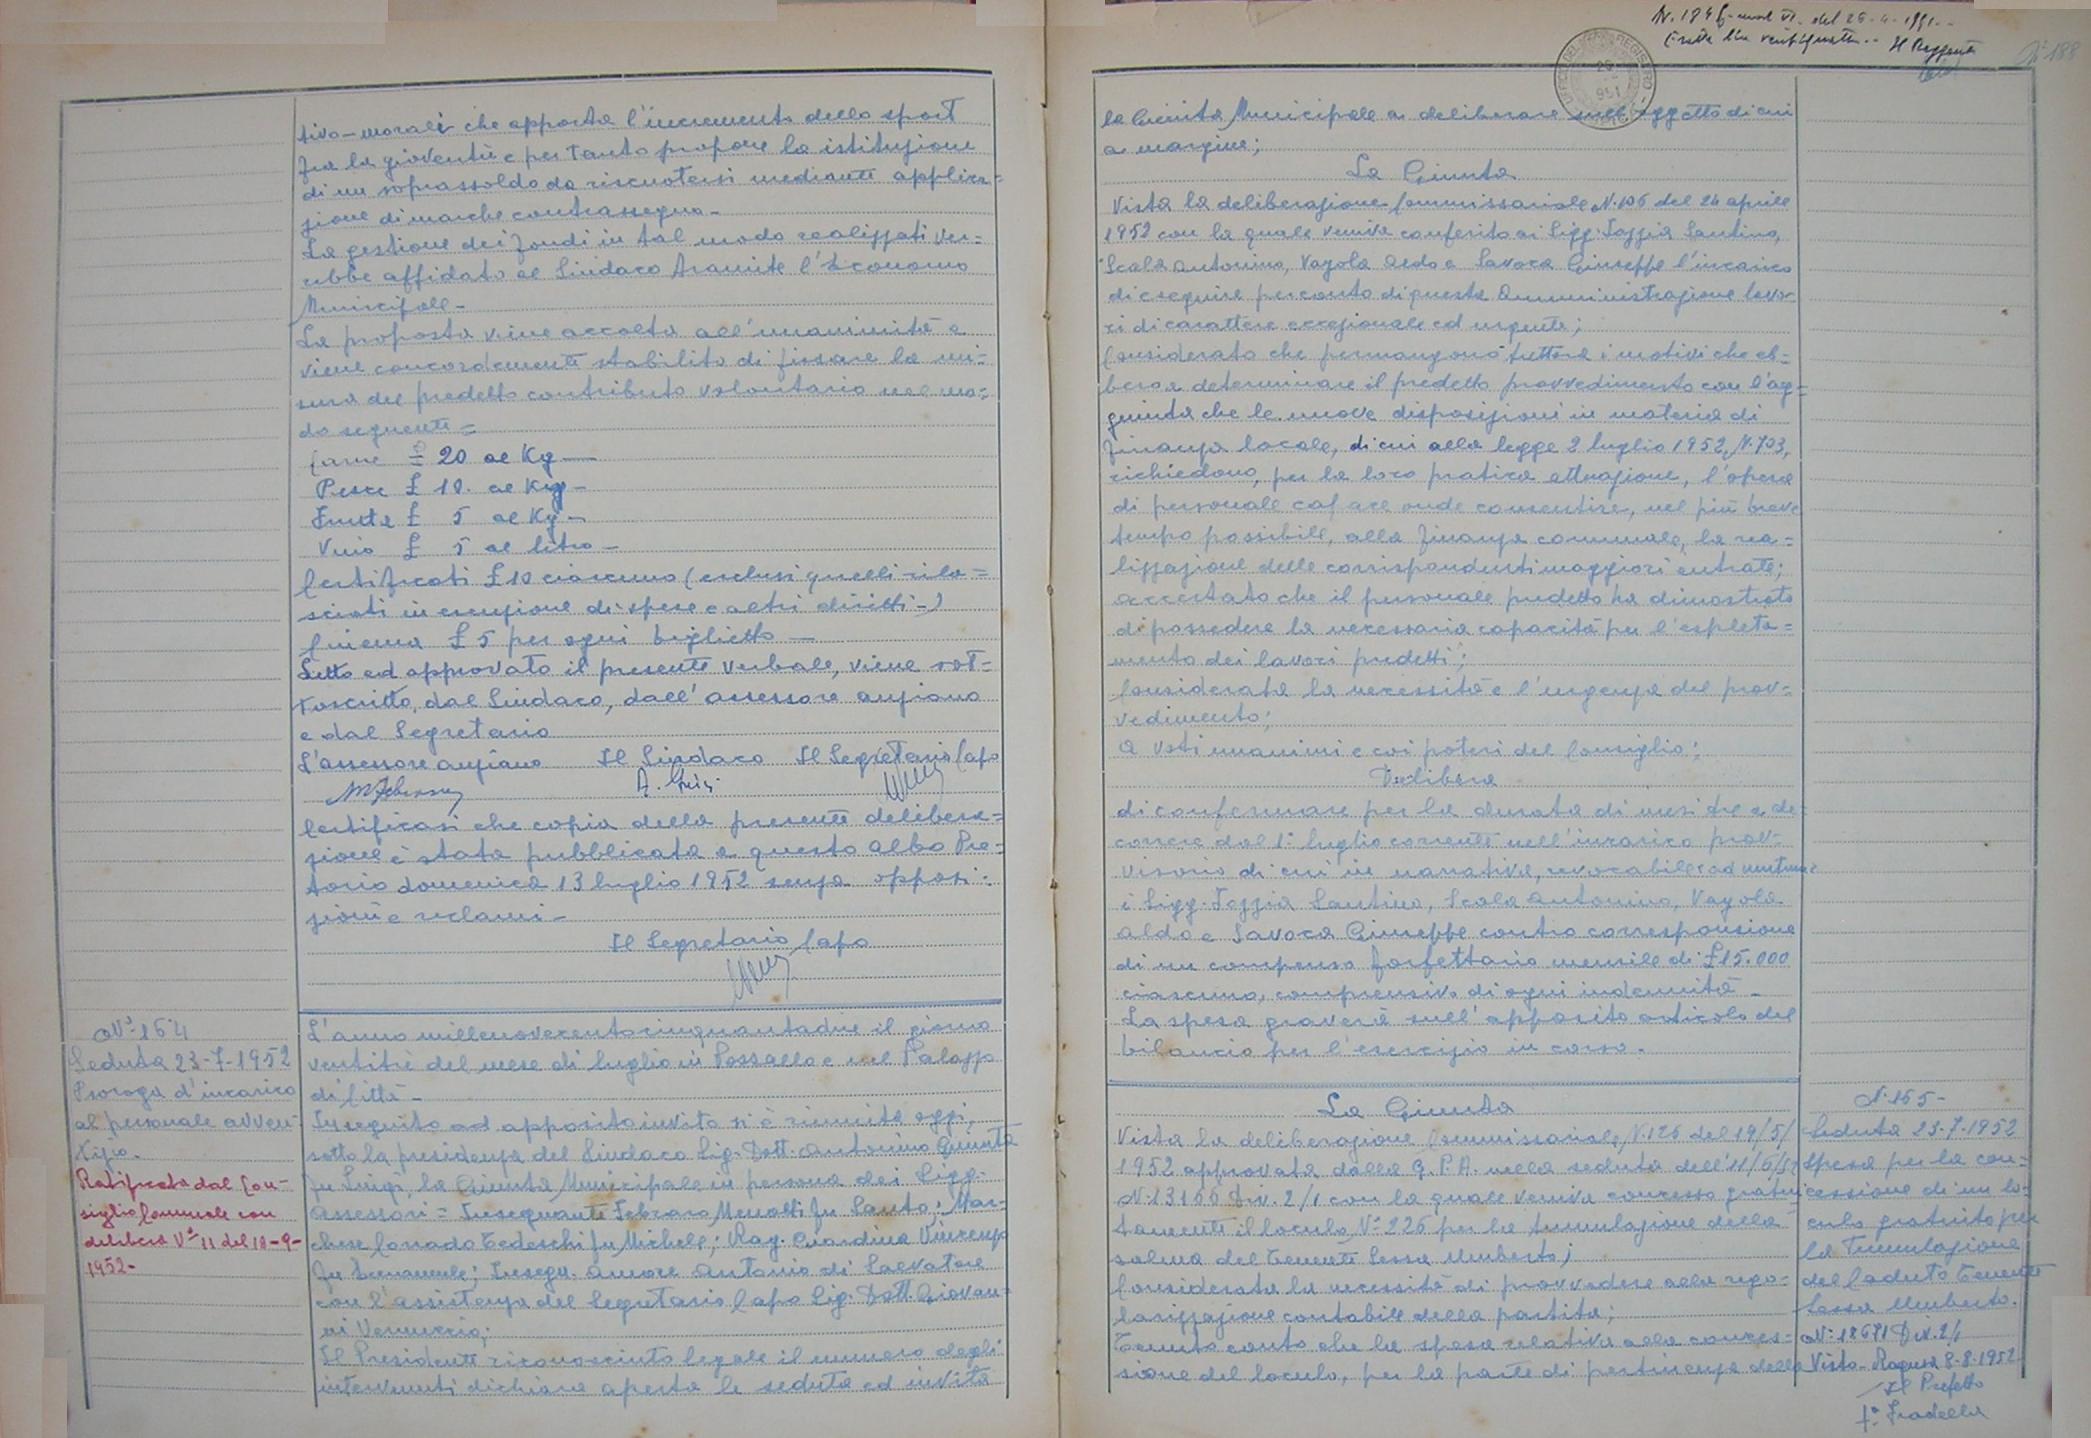 tivo-morali che apporta l'incremento dello sport
fra la gioventù e pertanto propone la istituzione
di un soprassoldo da riscuotersi mediante applica=
zione di marche contrassegno-
La gestione dei fondi in tal modo realizzati ver-
rebbe affidato al Sindaco tramite l'Economo
Municipale-
La proposta viene accolta all'unanimità e
viene concordemente stabilito di fissare la mi-
sura del predetto contributo volontario nel mo-
do seguente=
Carne £ 20 al Kg-
Pesce £ 10. al Kg-
Frutta £ 5 al Kg-
Vino £ 5 al litro-
Certificati £ 10 ciascuno (esclusi quelli rila=
sciati in esenzione di spese e altri diritti-)
Cinema £ 5 per ogni biglietto-
Letto ed approvato il presente verbale, viene sot-
toscritto, dal Sindaco, dall'assessore anziano
e dal Segretario
L'assessore anziano Il Sindaco Il Segretario Capo
Certificasi che copia della presente delibera=
zione è stata pubblicata a questo Albo Pre=
torio domenica 13 luglio 1952 senza opposi-
zioni e reclami-
Il Segretario Capo
N° 164
Seduta 23-7-1952
Proroga d'incarico
al personale avven-
tizio.
Ratificata dal Con-
siglio Comunale con
delibera N° 11 del 10-9-
1952-
L'anno millenovecentocinquantadue il giorno
ventitrè del mese di luglio in Pozzallo e nel Palazzo
di Città-
In seguito ad apposito invito si è riunita oggi,
sotto la presidenza del Sindaco Sig. Dott. Antonino Giunta
fu Luigi, la Giunta Municipale in persona dei Sigg.
Assessori= Insegnante Febraro Menotti fu Santo; Mar-
chese Corrado Tedeschi fu Michele; Rag. Giardina Vincenzo
fu Emanuele; Insegn. Amore Antonio di Salvatore
con l'assistenza del Segretario Capo Sig. Dott. Giovan-
ni Vennuccio;
Il Presidente riconosciuto legale il numero degli
intervenuti dichiara aperta la seduta ed invita
N. 184 del 26-4-1951
Il Reggente
N° 188
UFFICIO DEL REGISTRO
951
la Giunta Municipale a deliberare sull'oggetto di cui
a margine;
La Giunta
Vista la deliberazione Commissariale N. 106 del 24 aprile
1952 con la quale veniva conferito ai Sigg. Iozzia Santino,
Scala Antonino, Vayola Aldo e Savoca Giuseppe l'incarico
di eseguire per conto di questa Amministrazione lavo-
ri di carattere eccezionale ed urgente;
Considerato che permangono tuttora i motivi che eb-
bero a determinare il predetto provvedimento con l'ag-
giunta che le nuove disposizioni in materia di
finanza locale, di cui alla legge 2 luglio 1952, N. 703,
richiedono, per la loro pratica attuazione, l'opera
di personale capace onde consentire, nel più breve
tempo possibile, alla finanza comunale, la rea=
lizzazione delle corrispondenti maggiori entrate;
Accertato che il personale predetto ha dimostrato
di possedere la necessaria capacità per l'espleta=
mento dei lavori predetti;
Considerata la necessità e l'urgenza del prov-
vedimento;
A voti unanimi e coi poteri del Consiglio;
Delibera
di confermare per la durata di mesi tre a de-
correre dal 1° luglio corrente nell'incarico prov-
visorio di cui in narrativa, revocabile ad nutum
i Sigg. Iozzia Santino, Scala Antonino, Vayola
Aldo e Savoca Giuseppe contro corresponsione
di un compenso forfettario mensile di £ 15.000
ciascuno, comprensivo di ogni indennità-
La spesa graverà sull'apposito articolo del
bilancio per l'esercizio in corso.
La Giunta
Vista la deliberazione Commissariale, N. 126 del 19/5/
1952 approvata dalla G.P.A. nella seduta dell'11/6/52
N. 13166 Div. 2/1 con la quale veniva concesso gratui
tamente il loculo N° 226 per la tumulazione della
salma del Tenente Sessa Umberto;
Considerata la necessità di provvedere alla rego-
larizzazione contabile della partita;
Tenuto conto che la spesa relativa alla conces-
sione del loculo, per la parte di pertinenza della
N. 165-
Seduta 23-7-1952
Spesa per la con-
cessione di un lo-
culo gratuito per
la Tumulazione
del Caduto Tenente
Sessa Umberto.
N° 18671 Div. 2/1
Visto- Ragusa 8-8-1952
Il Prefetto
f° Fradella